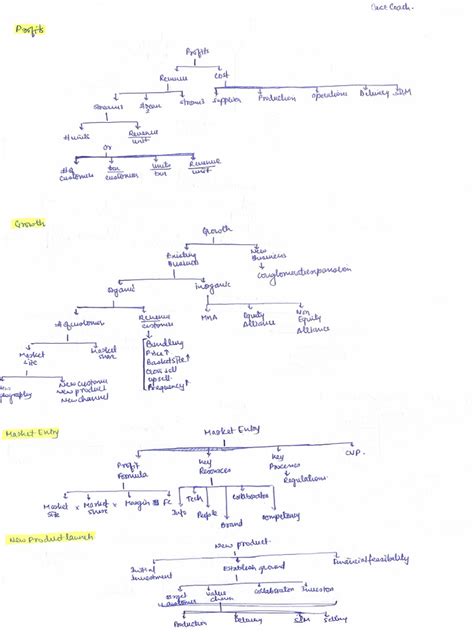 Case Coach.
Profits
Profits
Revenue Cost
Stream1 Stream Stream3 Supplier Production Operations Delivery SRM
# units Revenue/unit
or
# of customers txn/customer units/txn Revenue/unit
Growth
Growth
Existing Business New Business
Organic inorganic → conglomerate expansion
# of customer Revenue/customer M&A Equity Alliance Non Equity Alliance
Market Size Market share
Bundling
Price ↑
Basket size ↑
Cross sell
up sell
Frequency ↑
New customer
New product
New channel
Market Entry
Market Entry
Profit Formula Key Resources Key Processes CVP.
Regulations
Market size × Market share × Margin FC
Info Tech People Brand Collaborator Competency
New Product launch
New product
Initial Investment Establish ground Financial feasibility
Target customer Value chain Collaborator Investor
Production Delivery Selling